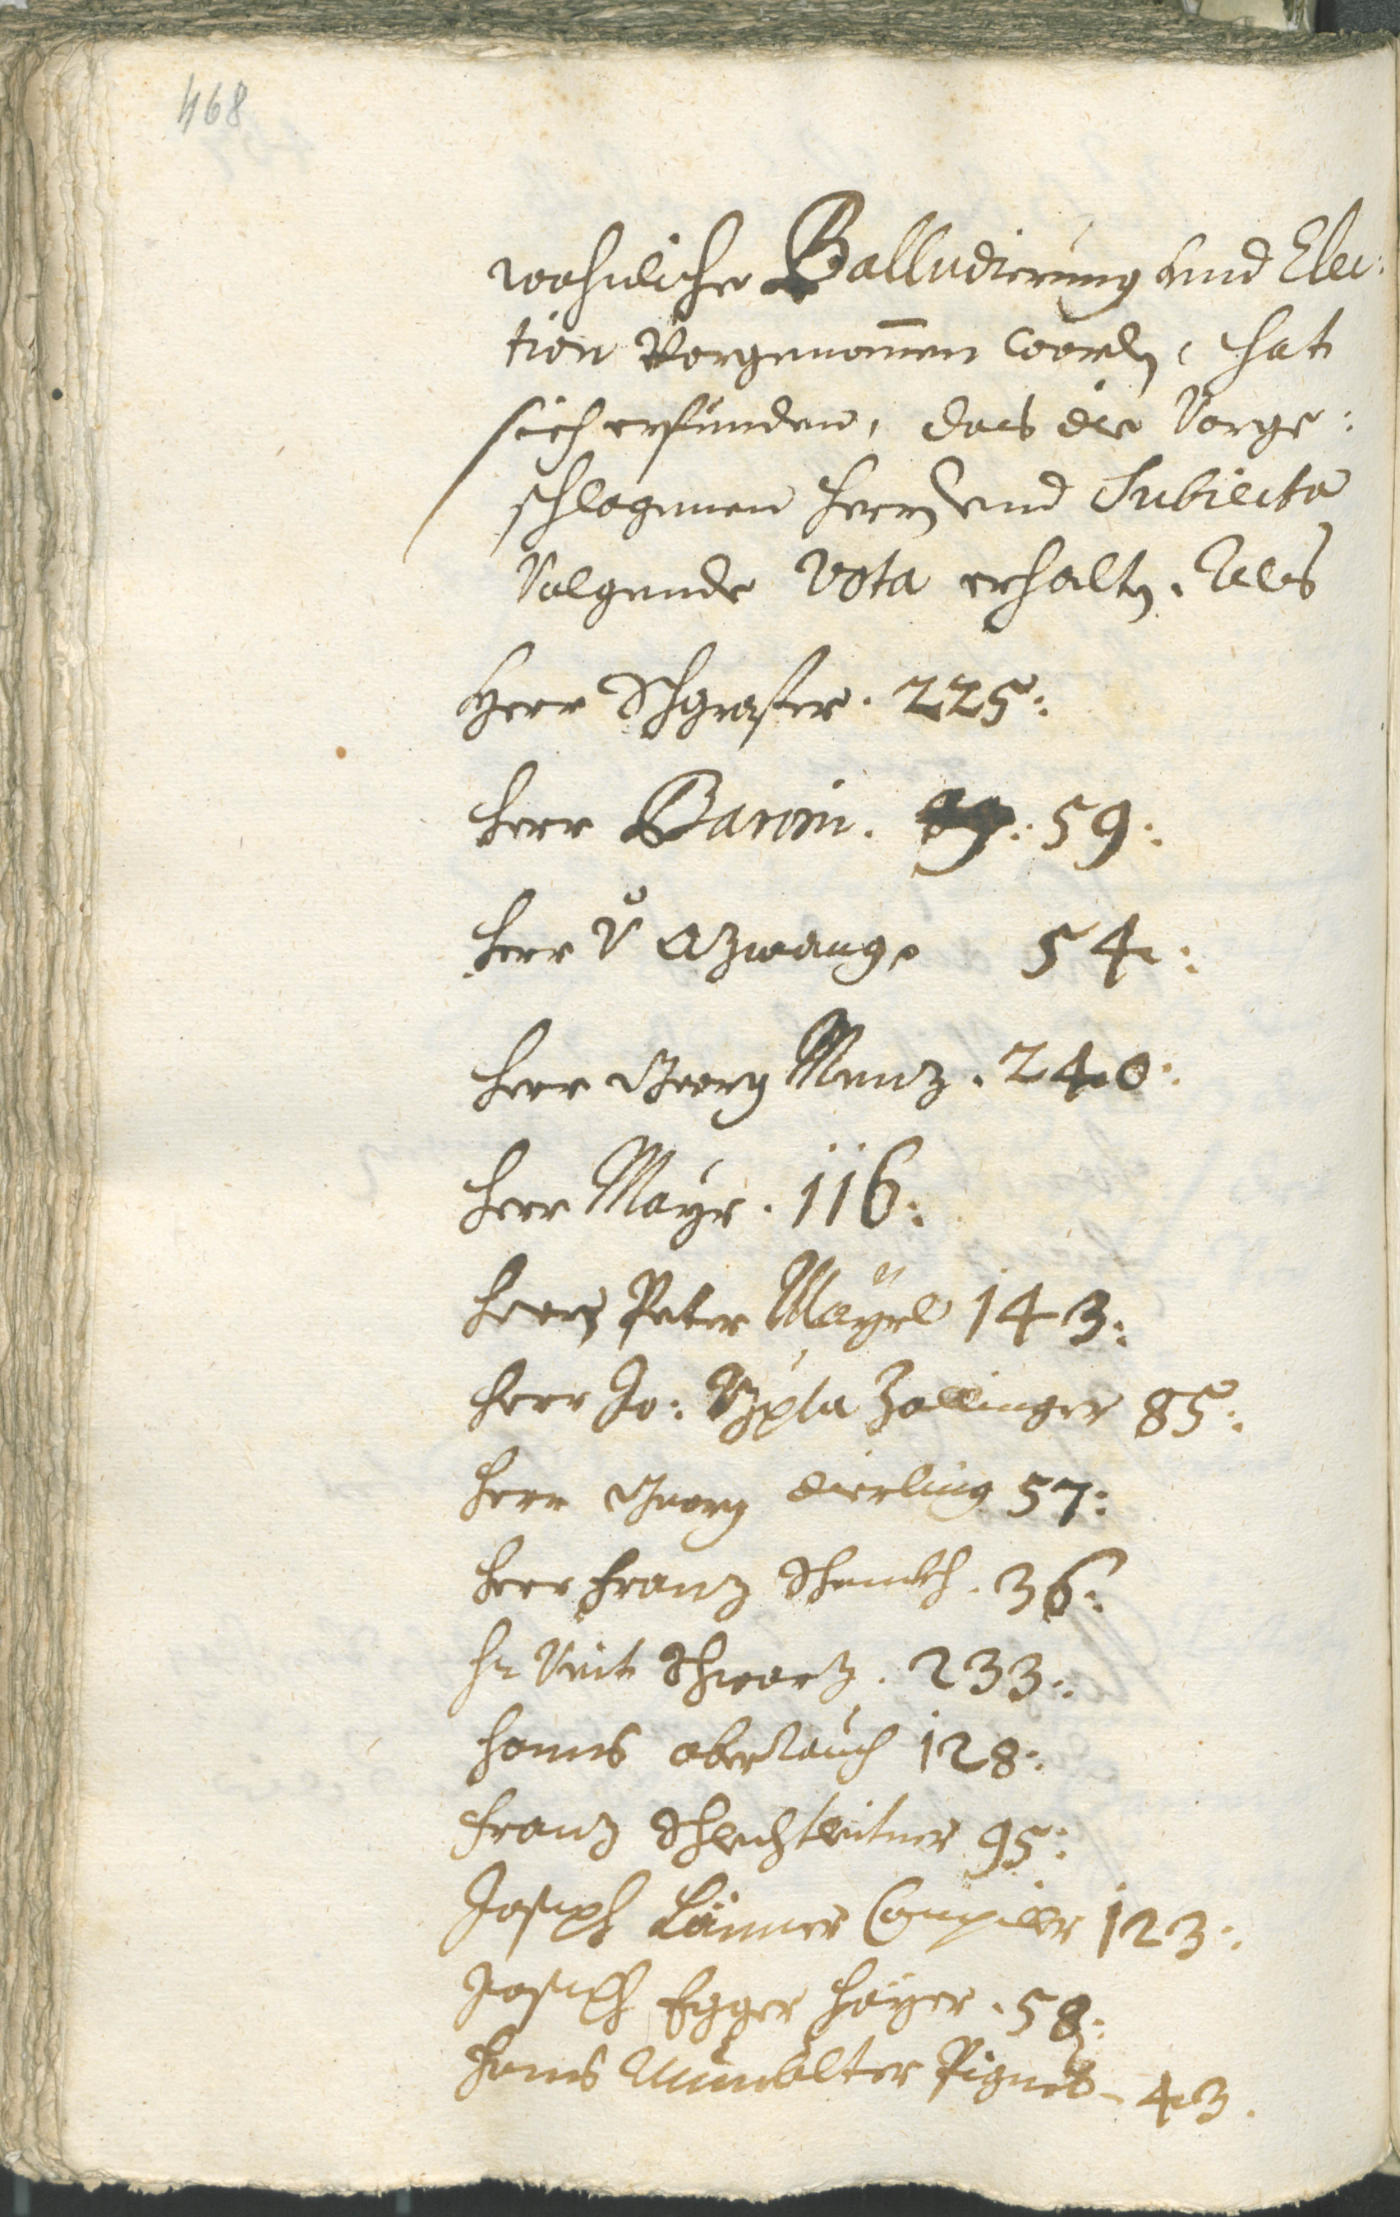 468
wohnliche Balludierung und Elec:
tion Vorgenommen word, hat
sich erfunden, das die Vorge:
schlagenen Herrn und Subiecta
Volgende Vota erhalten. Als
Herr Schgraffer. 225:
Herr Baroni. 59:
Herr V Azwang. 54:
Herr Georg Menz. 240:
Herr Mayr. 116:
Herr Peter Mayrl 143:
Herr Jo: Bpta Zallinger 85:
Herr Georg Dierling 57:
Herr Franz Schenkh. 36:
Hr Veit Schwarz. 233:
Hanns oberrauch 128:
Franz Schlechtleitner 95:
Joseph 123:
Joseph Egger Hayer. 58:
Hanns Mumelter Pignet 43.